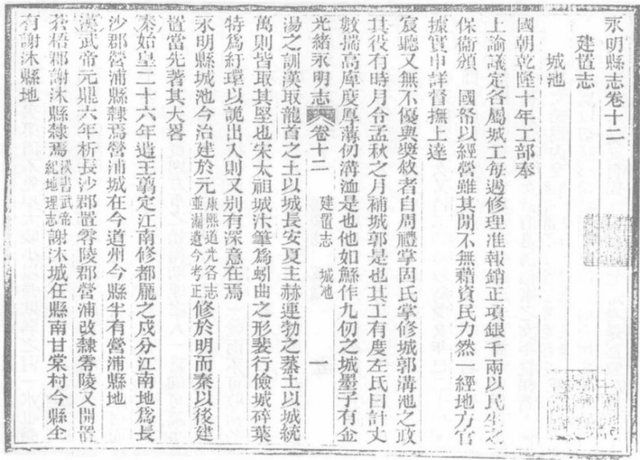 永明縣志卷十二
建置志
城池
國朝乾隆十年工部奉
上諭議定各屬城工每遇修理准報銷正項銀千兩以民生之
保衞頒國帑以經營雖其閒不無藉資民力然一經地方官
據實申詳督撫上達
宸聽又無不優與獎敘者自周禮掌固氏掌修城郭溝池之政
其役有時月令孟秋之月補城郭是也其工有度左氏曰計丈
數揣高厚度厚薄仞溝洫是也他如鯀作九仞之城墨子有金
光緒永明志 卷十二 建置志 城池 一
湯之訓漢取龍首之土以城長安夏主赫連勃之蒸土以城統
萬則皆取其堅也宋太祖城汴筆爲蚓曲之形裴行儉城碎葉
特爲紆環以詭出入則又別有深意在焉
永明縣城池今治建於元康熙道光各志並漏遺今考正修於明而秦以後建
置當先著其大畧
秦始皇二十六年遣王翦定江南修都龐之戍分江南地爲長
沙郡營浦縣隸焉營浦城在今道州今縣半有營浦縣地
漢武帝元鼎六年析長沙郡置零陵郡營浦改隸零陵又開置
蒼梧郡謝沐縣隸焉漢書武帝紀地理志謝沐城在縣南甘棠村今縣全
有謝沐縣地